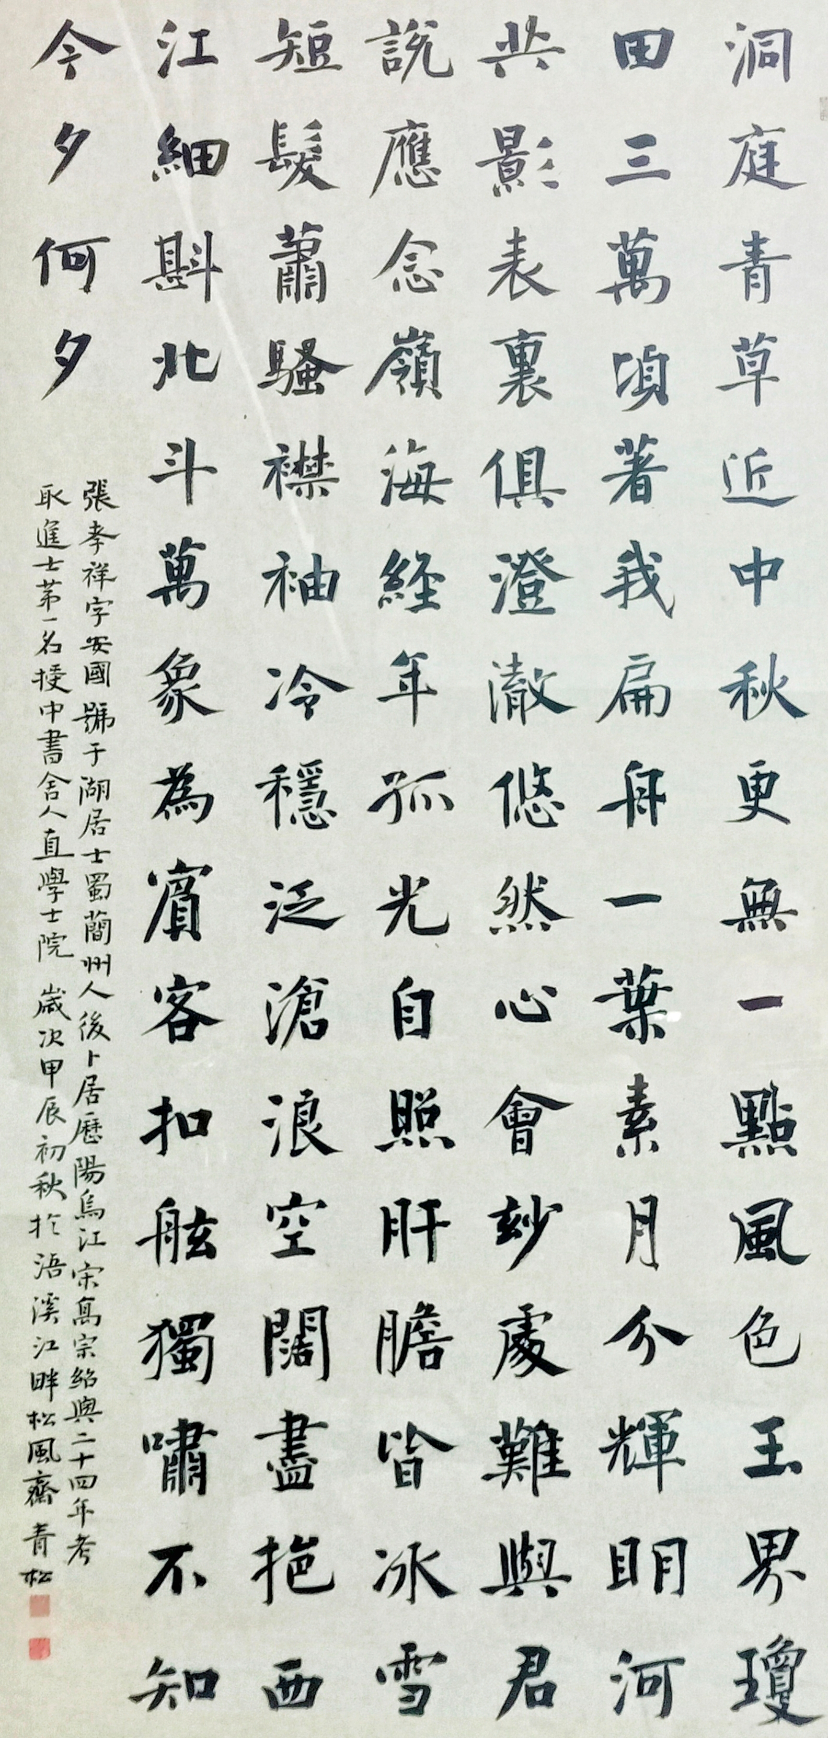 洞庭青草近中秋更無一點風色玉界瓊
田三萬頃著我扁舟一葉素月分輝明河
共影表裏俱澄澈悠然心會玅處難與君
說應念嶺海經年孤光自照肝膽皆冰雪
短髮蕭騷襟袖冷穩泛滄浪空闊盡挹西
江細斟北斗萬象為賓客扣舷獨嘯不知
今夕何夕
張孝祥字安國號于湖居士蜀蕳州人後卜居歷陽烏江宋高宗紹興二十四年考
取進士第一名授中書舍人直學士院 歲次甲辰初秋於浯溪江畔松風齋青松